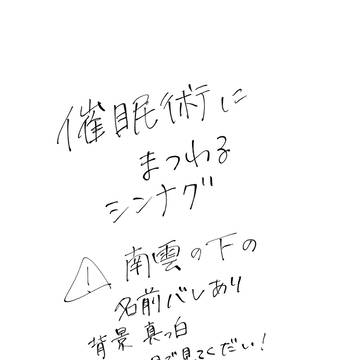 催眠術に
まつわる
シンナグ
⚠ 南雲の下の
名前バレあり
背景 真っ白
で見てくだい!